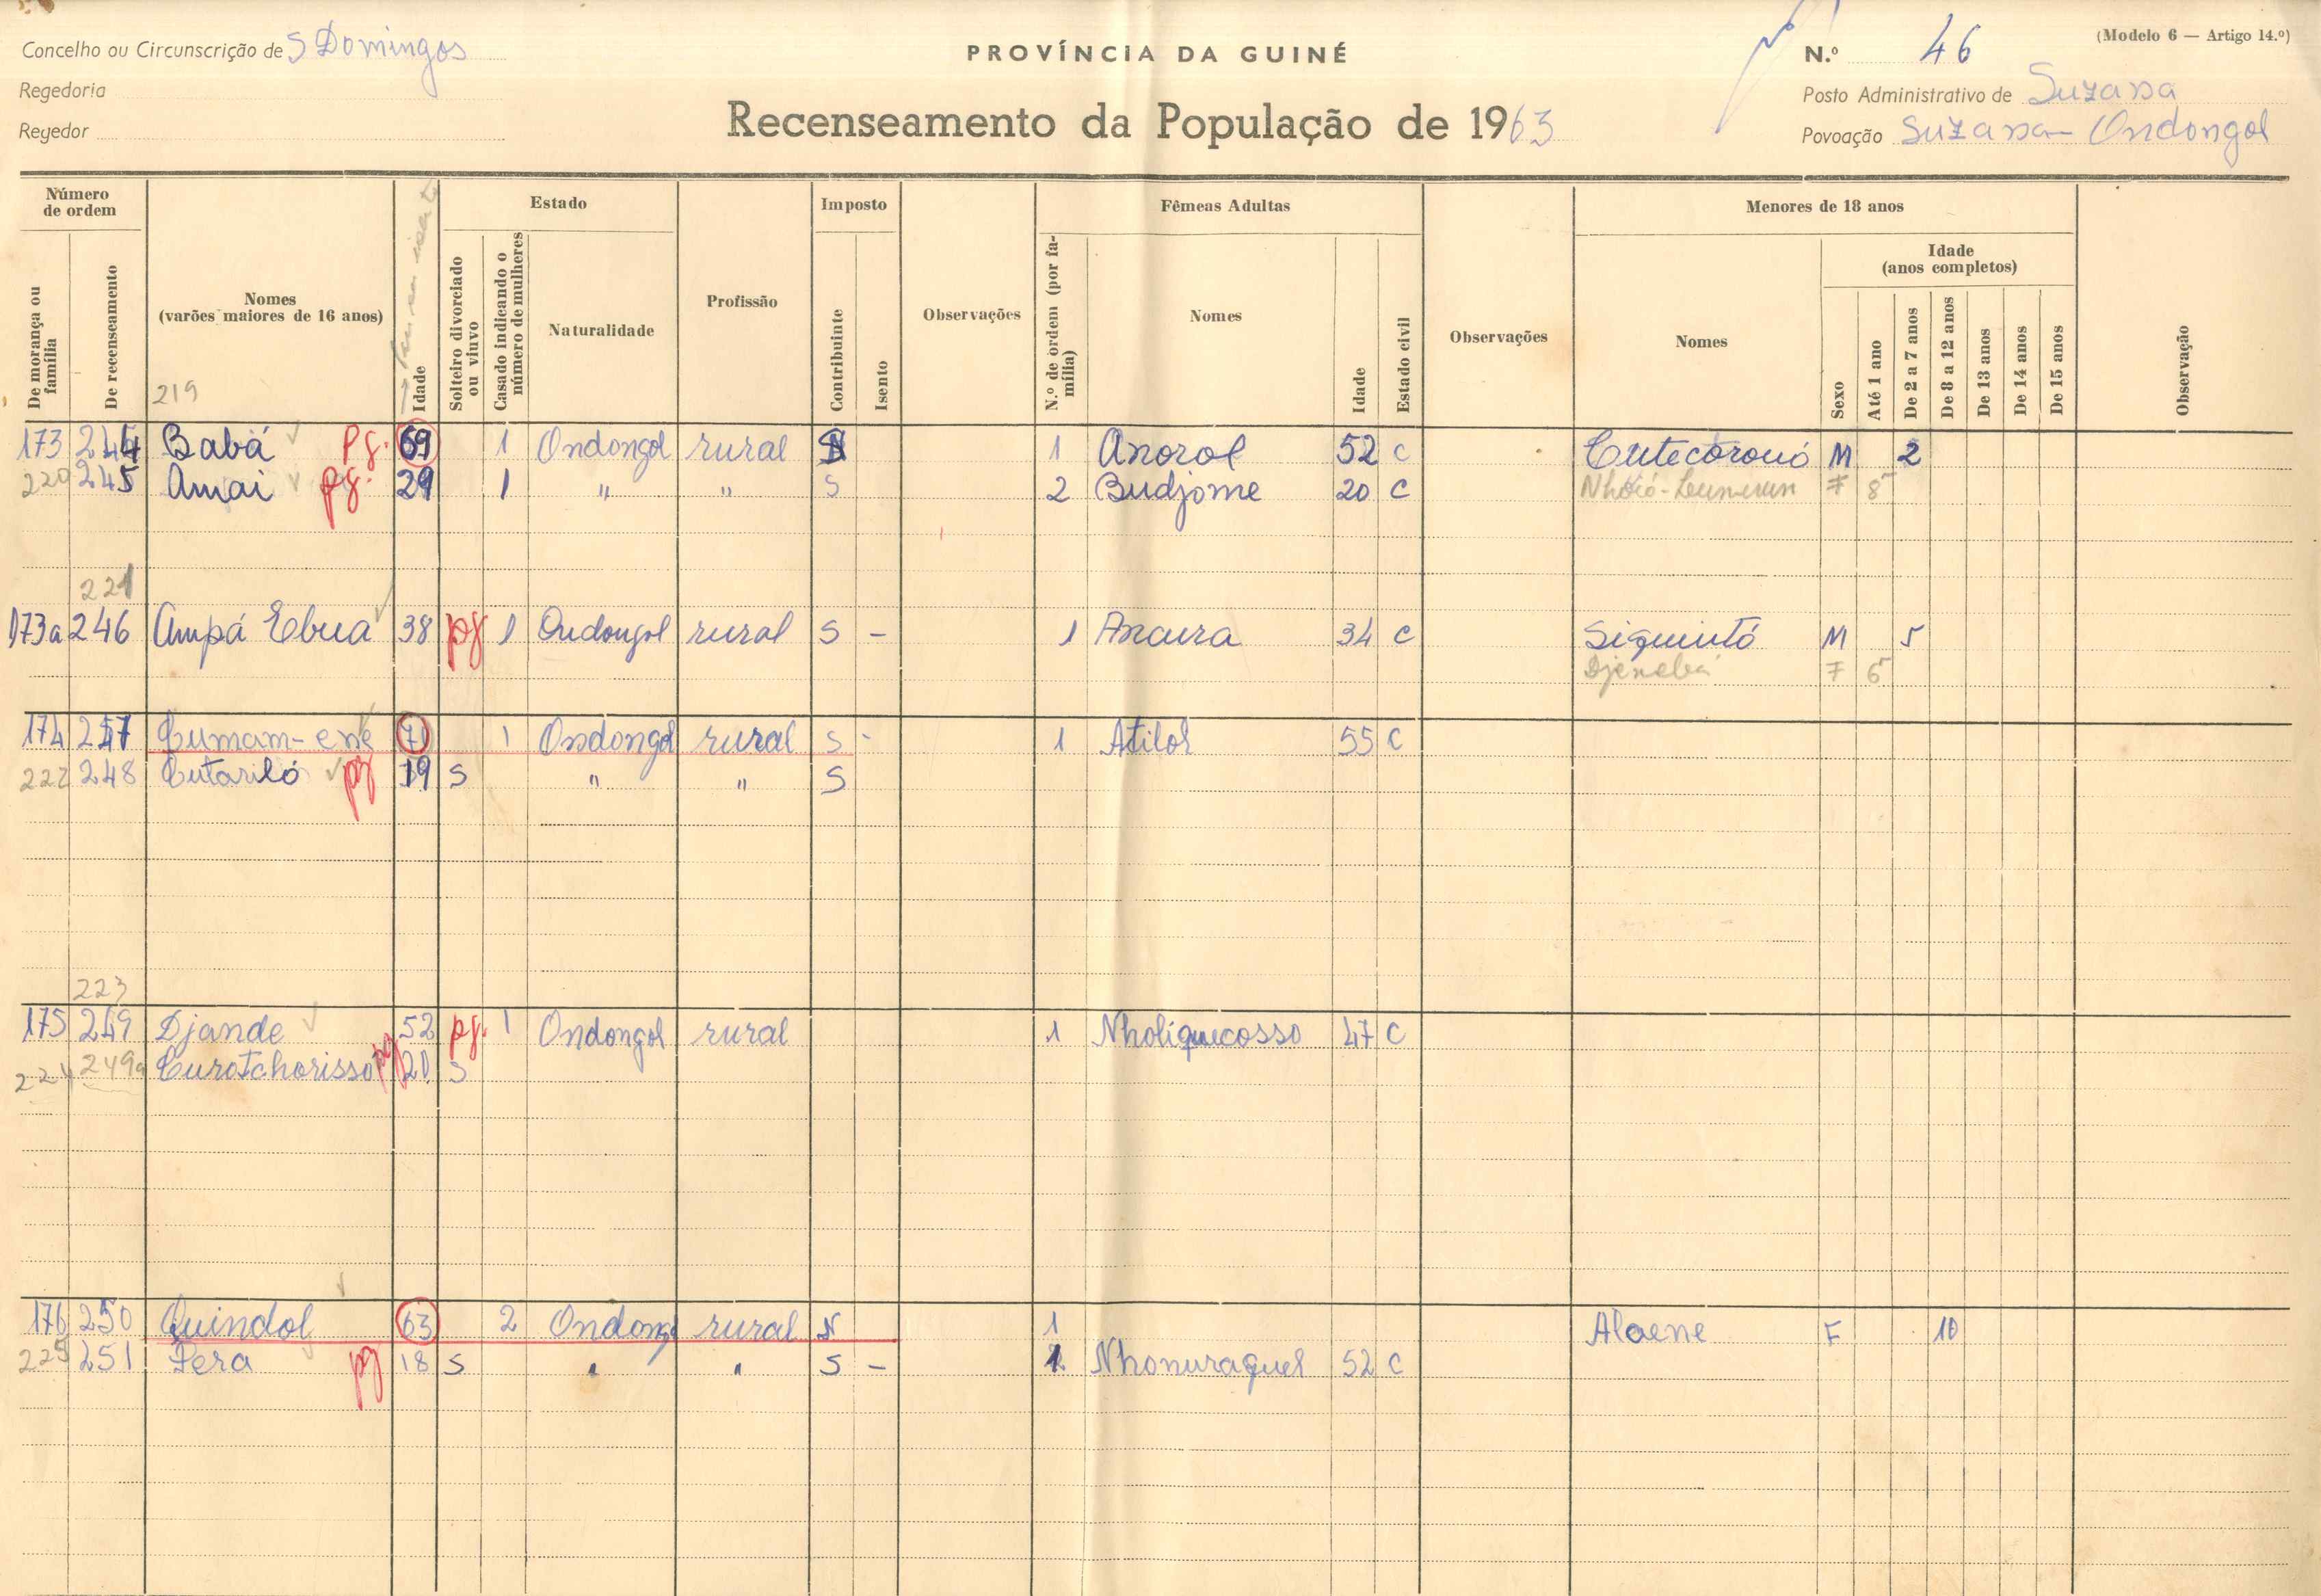 Concelho ou Circunscrição de S Domingos
Regedoria
Regedor
PROVÍNCIA DA GUINÉ
Recenseamento da População de 1963
(Modelo 6 — Artigo 14.º)
N.º 46
Posto Administrativo de Suzana
Povoação Suzana - Ondongol
Número de ordem
De morança ou família
De recenseamento
Nomes
(varões maiores de 16 anos)
219
Idade
Estado
Solteiro divorciado ou viuvo
Casado indicando o número de mulheres
Naturalidade
Profissão
Imposto
Contribuinte
Isento
Observações
Fêmeas Adultas
N.º de ordem (por família)
Nomes
Idade
Estado civil
Observações
Menores de 18 anos
Nomes
Sexo
Idade
(anos completos)
Até 1 ano
De 2 a 7 anos
De 8 a 12 anos
De 13 anos
De 14 anos
De 15 anos
Observação
173 244 Babá Pg. 69 1 Ondongol rural 1 Anorol 52 C M 2
220 245 Amai pg. 29 1 " " S 2 Budjome 20 C F 8
221
173a 246 Ampá Ebua 38 pg 1 Ondongol rural S - 1 Anaura 34 C Siquintó M 5
Djenebá F 6
174 247 Cumam-ene 71 1 Ondongol rural S - 1 Atilol 55 C
222 248 Cutariló pg 19 S " " S
223
175 249 Djande 52 pg. 1 Ondongol rural 1 Nholiquecosso 47 C
224 249a Curotchorisso pg 20 S
176 250 Quindol 63 2 Ondongol rural N 1 Alaene F 10
225 251 Fera pg 18 S " " S - Nhonuraquel 52 C